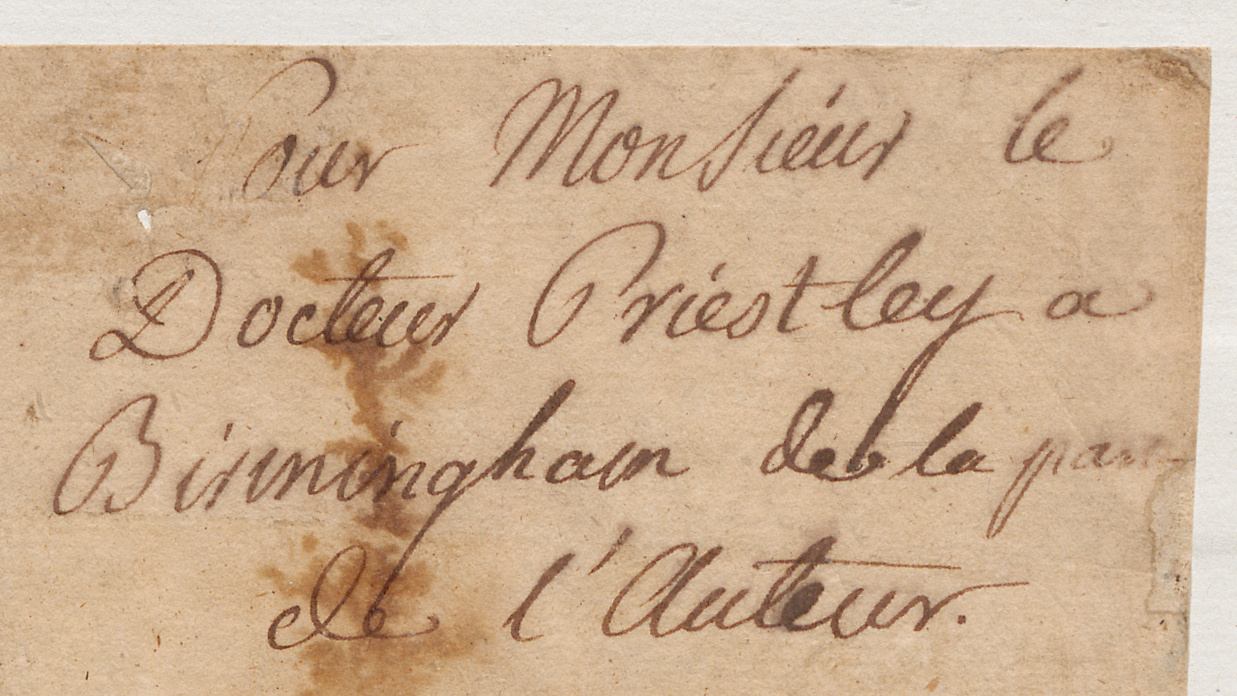 Pour Monsieur le
Docteur Priestley a
Birmingham de la part
de l'Auteur.